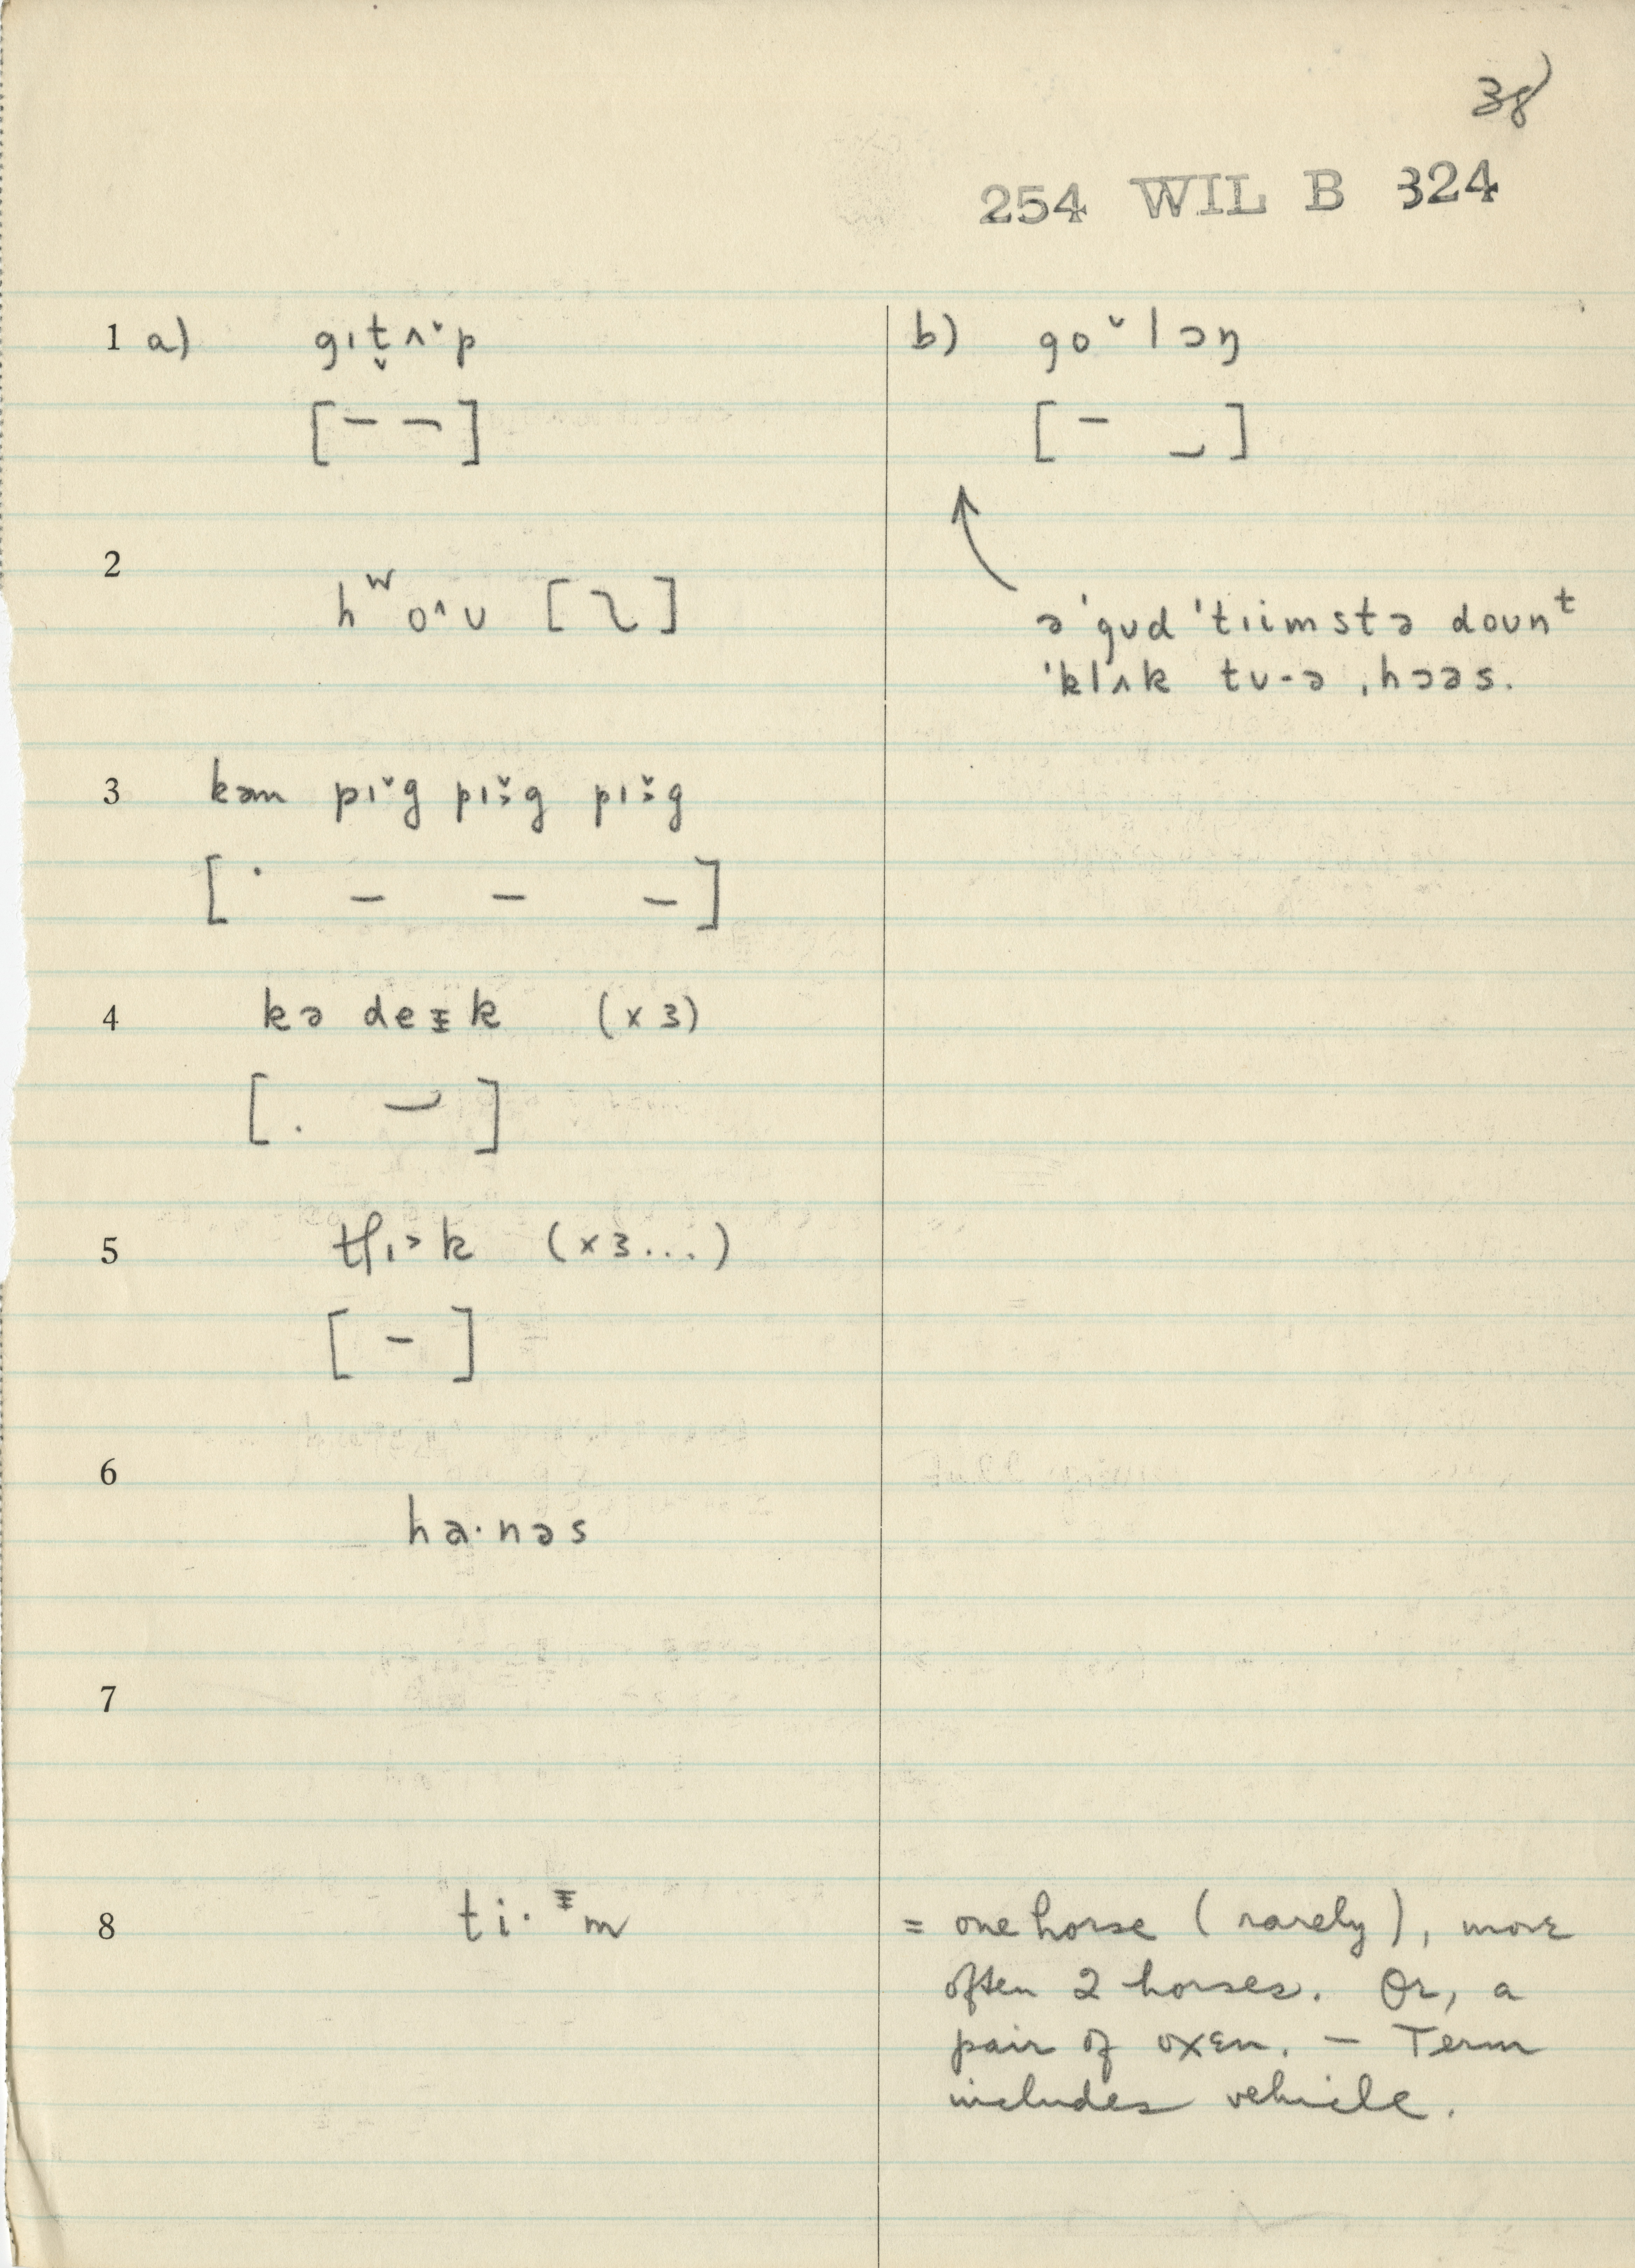 38)
254 WIL B 324
1 a) gɪt̬ʌ˅p
[– –]
b) go˅lɔŋ
[– ⏑]
2
hʷo^ʊ [ ]
ə ˈgʊd ˈtɪimstə doʊnᵗ
ˈklʌk tʊ-ə ˌhɔəs.
3 kəm pɪ˅g pɪ˅g pɪ˅g
[· – – –]
4 kə deɪk (x 3)
[. ⏑]
5 tʃɪ>k (x 3...)
[–]
6
ha·nəs
7
8 ti·ɪm
= one horse (rarely), more
often 2 horses. Or, a
pair of oxen. – Term
includes vehicle.